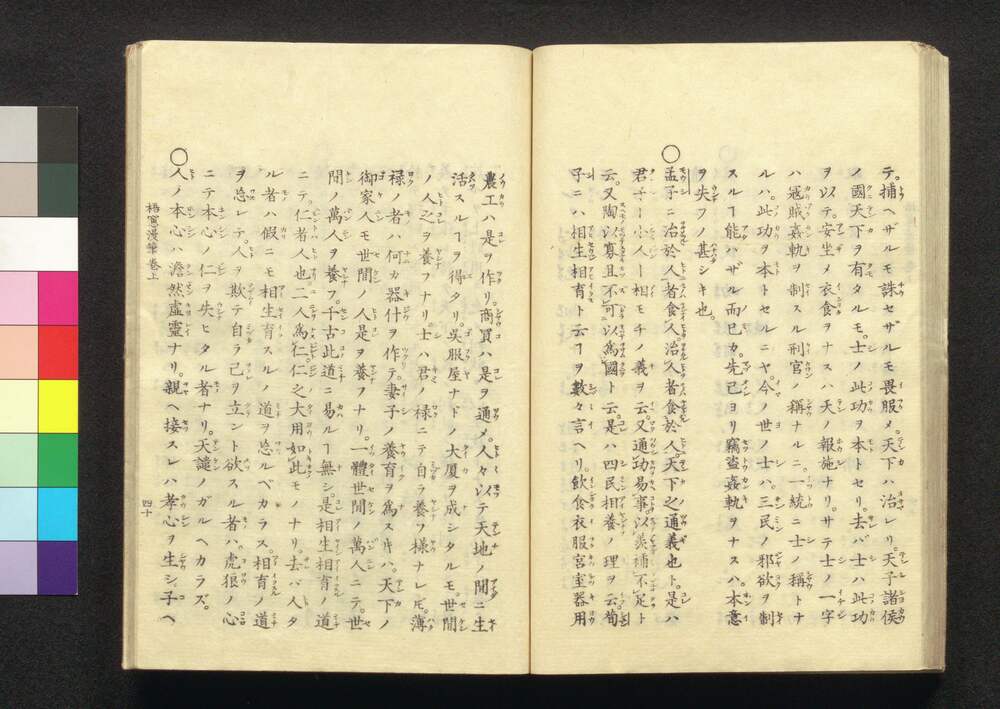 テ。捕ヘザルモ誅セザルモ畏服〆。天下ハ治レリ。天子諸侯
ノ國天下ヲ有タルモ。士ノ此功ヲ本トセリ。去バ士ハ此功
ヲ以テ。安坐〆衣食ヲナスハ。天ノ報施ナリ。サテ士ノ一字
ハ冦賊姦軌ヲ制スル刑官ノ稱ナルニ。一統ニ士ノ稱トナ
ルハ。此功ヲ本トセルニヤ。今ノ世ノ士ハ。三民ノ邪欲ヲ制
スルヿ能ハザル而已カ。先已ヨリ竊盜姦軌ヲナスハ。本意
ヲ失フノ甚シキ也。
〇孟子ニ治於人者食人。治人者食於人。天下之通義也ト。是ハ
君子ー小人ー相モチノ義ヲ云。又通功易事。以羨補不足ト
云。又陶以寡且不可以爲國ト云。是ハ四民相養ノ理ヲ云。荀
子ニハ相生相育ト云ヿヲ數々言ヘリ。飲食衣服宮室器用
農工ハ是ヲ作リ。商買ハ是ヲ通〆。人々以テ天地ノ間ニ生
活スルヿヲ得タリ。吳服屋ナドノ大厦ヲ成シタルモ。世間
ノ人之ヲ養フナリ。士ハ君ノ禄ニテ自ラ養フ様ナレ𪜈。薄
禄ノ者ハ何カ器什ヲ作テ。妻子ノ養育ヲ爲スキハ。天下ノ
御家人モ世間ノ人是ヲ養フナリ。一體世間ノ萬人ニテ。世
間ノ萬人ヲ養フ。千古此道ニ易ルヿ無シ。是相生相育ノ道
ニテ。仁者人也。二人爲仁。仁之大用如此モノナリ。去バ人タ
ル者ハ假ニモ相生育スルノ道ヲ忘ルベカラス。相育ノ道
ヲ忘レテ。人ヲ欺テ自ラ己ヲ立ント欲スル者ハ。虎狼ノ心
ニテ本心ノ仁ヲ失ヒタル者ナリ。天譴ノガルヘカラズ。
〇人ノ本心ハ。澹然虛靈ナリ。親ヘ接スレハ孝心ヲ生シ。子ヘ
梧窓漫筆卷上
四十